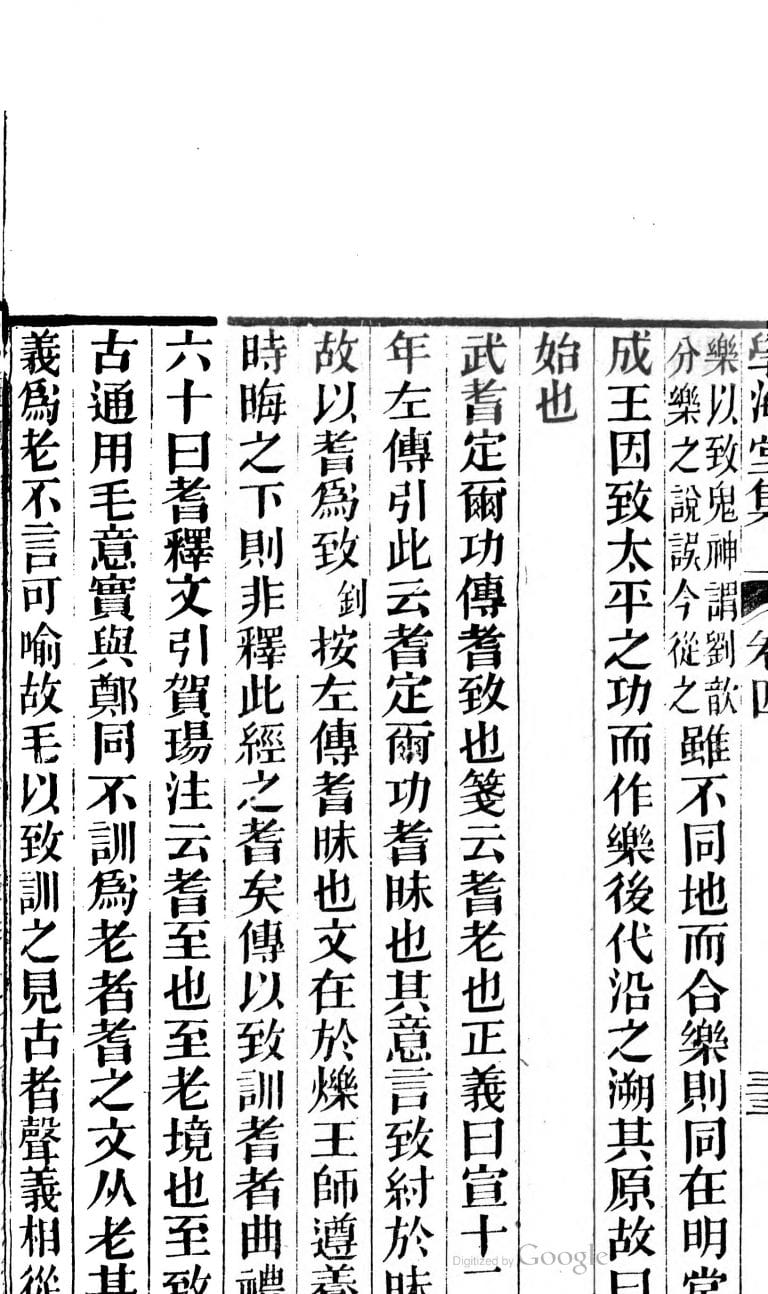 學海堂集
卷四
三三
樂以致鬼神謂劉歆
分樂之說誤今從之
雖不同地而合樂則同在明堂
成王因致太平之功而作樂後代沿之溯其原故曰
始也
武耆定爾功傳耆致也箋云耆老也正義曰宣十二
年左傳引此云耆定爾功耆昧也其意言致紂於昧
故以耆爲致
釗
按左傳耆昧也文在於爍王師遵養
時晦之下則非釋此經之耆矣傳以致訓耆者曲禮
六十曰耆釋文引賀瑒注云耆至也至老境也至致
古通用毛意實與鄭同不訓爲老者耆之文从老其
義爲老不言可喻故毛以致訓之見古者聲義相從
Digitized by Google